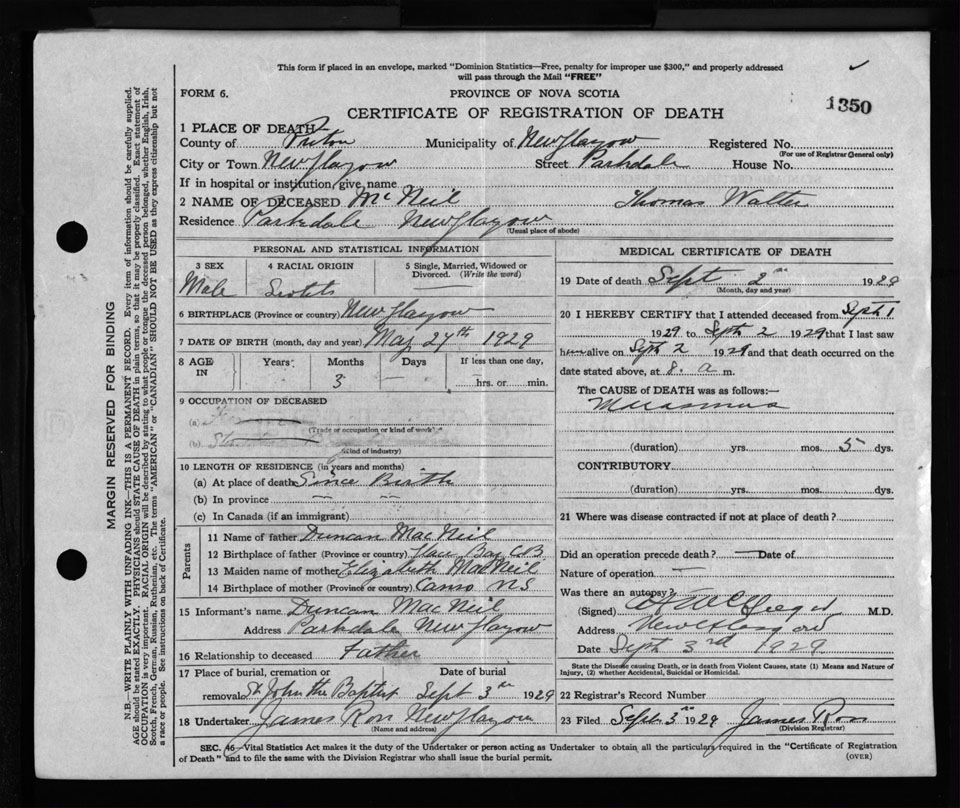 This form if placed in an envelope, marked "Dominion Statistics—Free, penalty for improper use $300," and properly addressed
will pass through the Mail "FREE"
FORM 6.
PROVINCE OF NOVA SCOTIA
1350
CERTIFICATE OF REGISTRATION OF DEATH
1 PLACE OF DEATH
County of Pictou Municipality of New Glasgow Registered No.
(For use of Registrar General only)
City or Town New Glasgow Street Parkdale House No.
If in hospital or institution, give name
2 NAME OF DECEASED McNeil Thomas Walter
Residence Parkdale New Glasgow
(Usual place of abode)
PERSONAL AND STATISTICAL INFORMATION
3 SEX 4 RACIAL ORIGIN 5 Single, Married, Widowed or
Divorced. (Write the word)
Male Scotch
6 BIRTHPLACE (Province or country) New Glasgow
7 DATE OF BIRTH (month, day and year) May 27th 1929
8 AGE IN Years Months Days If less than one day,
3 — hrs. or min.
9 OCCUPATION OF DECEASED
(a)
(Trade or occupation or kind of work)
(b)
(Kind of industry)
10 LENGTH OF RESIDENCE (in years and months)
(a) At place of death Since Birth
(b) In province — —
(c) In Canada (if an immigrant)
Parents
11 Name of father Duncan MacNeil
12 Birthplace of father (Province or country) Glace Bay CB
13 Maiden name of mother Elizabeth MacNeil
14 Birthplace of mother (Province or country) Canso NS
15 Informant's name Duncan MacNeil
Address Parkdale New Glasgow
16 Relationship to deceased Father
17 Place of burial, cremation or Date of burial
removal St John the Baptist Sept 3rd 1929
18 Undertaker James Ross New Glasgow
(Name and address)
MEDICAL CERTIFICATE OF DEATH
19 Date of death Sept 2nd 1929
(Month, day and year)
20 I HEREBY CERTIFY that I attended deceased from Sept 1
1929 to Sept 2 1929 that I last saw
him alive on Sept 2 1929 and that death occurred on the
date stated above, at 8. a m.
The CAUSE OF DEATH was as follows:—
Marasmus
(duration) yrs. mos. 5 dys.
CONTRIBUTORY
(duration) yrs. mos. dys.
21 Where was disease contracted if not at place of death?
Did an operation precede death? — Date of
Nature of operation —
Was there an autopsy?
(Signed) M.D.
Address New Glasgow
Date Sept 3rd 1929
State the Disease causing Death, or in death from Violent Causes, state (1) Means and Nature of
Injury, (2) whether Accidental, Suicidal or Homicidal.
22 Registrar's Record Number
23 Filed Sept 3rd 1929 James Ross
(Division Registrar)
SEC. 46—Vital Statistics Act makes it the duty of the Undertaker or person acting as Undertaker to obtain all the particulars required in the "Certificate of Registration
of Death" and to file the same with the Division Registrar who shall issue the burial permit.
(OVER)
MARGIN RESERVED FOR BINDING
N.B.—WRITE PLAINLY WITH UNFADING INK—THIS IS A PERMANENT RECORD. Every item of information should be carefully supplied.
AGE should be stated EXACTLY. PHYSICIANS should STATE CAUSE OF DEATH in plain terms, so that it may be properly classified. Exact statement of
OCCUPATION is very important. RACIAL ORIGIN will be described by stating to what people or tongue the deceased person belonged, whether English, Irish,
Scotch, French, German, Russian, Ruthenian, etc. The terms "AMERICAN" or "CANADIAN" SHOULD NOT BE USED as they express citizenship but not
a race or people. See instructions on back of Certificate.